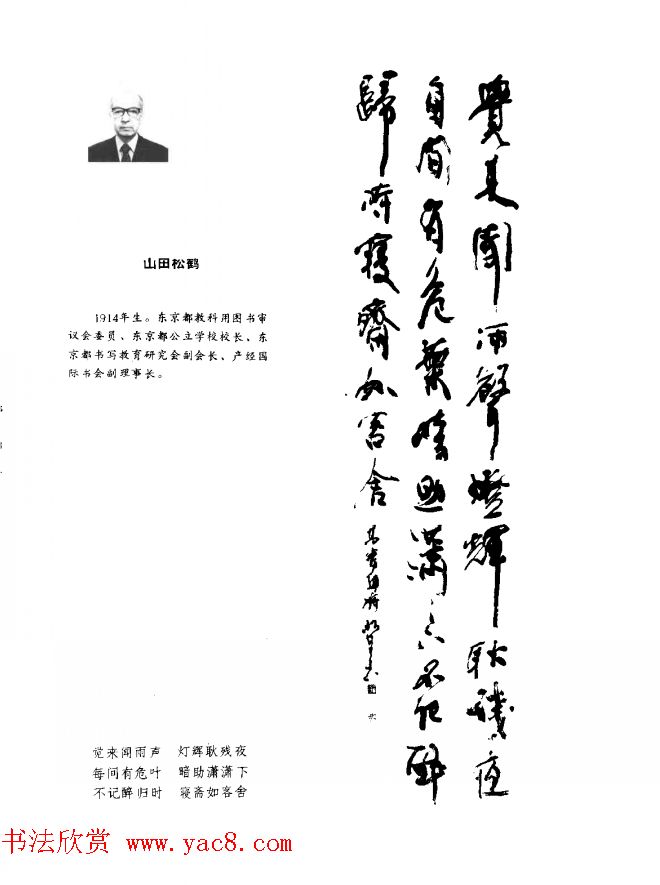 覺来聞雨聲燈輝耿残夜
每間有危葉暗助瀟々下不記醉
歸時寝齋如客舍
山田松鹤
1914年生。东京都教科用图书审
议会委员、东京都公立学校校长、东
京都书写教育研究会副会长、产经国
际书会副理事长。
觉来闻雨声 灯辉耿残夜
每问有危叶 暗助潇潇下
不记醉归时 寝斋如客舍
书法欣赏 www.yac8.com